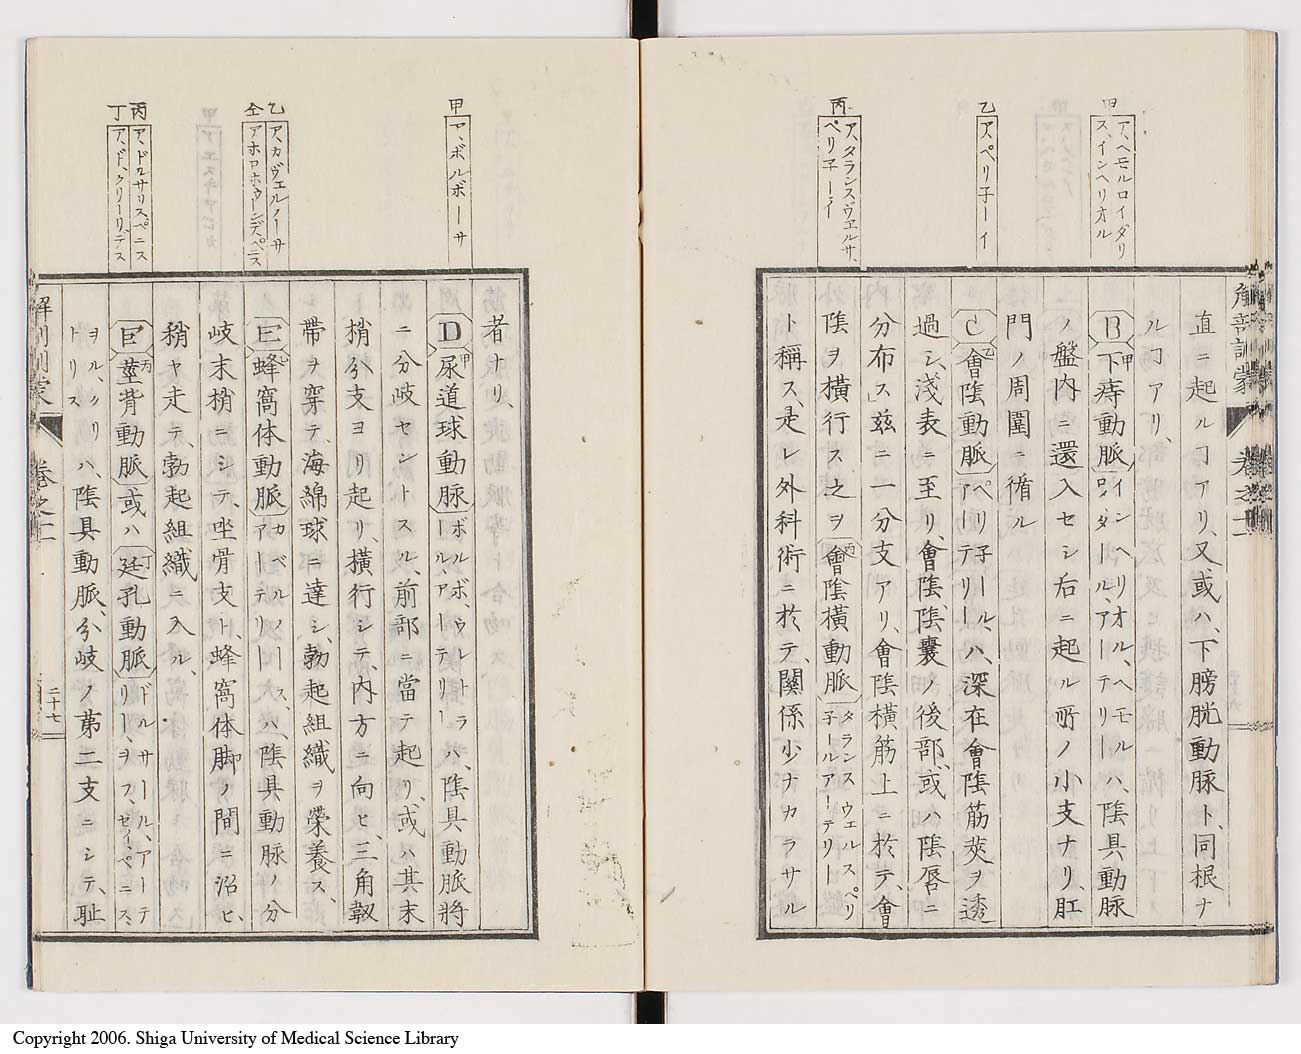 甲
ア、ヘモルロイダリ
ス、インヘリオル
乙
アペリ子ーイ
丙
ア、タランスヴエルサ、
ペリ子ーイ
直ニ起ルヿアリ、又或ハ、下膀胱動脈ト、同根ナ
ルヿアリ、
B 下痔動脈 インヘリオル、ヘモル
ロイダール、アーテリー ハ、陰具動脈
ノ盤内ニ還入セシ右ニ起ル所ノ小支ナリ、肛
門ノ周圍ニ循ル
C 會陰動脈 ペリ子ール、
アーテリー ハ、深在會陰筋莢ヲ透
過シ、淺表ニ至リ、會陰、陰囊ノ後部、或ハ陰唇ニ
分布ス」茲ニ一分支アリ、會陰橫筋上ニ於テ、會
陰ヲ橫行ス之ヲ 會陰橫動脈 タランスウエルスペリ
子ールアーテリー
ト稱ス、是レ外科術ニ於テ、關係少ナカラサル
解剖訓蒙
卷之十一
甲
ア、ボルボーサ
乙
ア、カヴエルノーサ
仝
丙
ア、ドロサリスペニス
丁
者ナリ、
D 尿道球動脈 ボルボ、ウレトラ
ール、アーテリー ハ、陰具動脈將
ニ分岐セントスル、前部ニ當テ起リ、或ハ其末
梢分支ヨリ起リ、橫行シテ、内方ニ向ヒ、三角靱
帶ヲ穿テ、海綿球ニ達シ、勃起組織ヲ榮養ス、
E 蜂窩体動脈 カベルノース、
アーテリー ハ、陰具動脈ノ分
岐末梢ニシテ、坐骨支ト、蜂窩体脚ノ間ニ沿ヒ、
稍ヤ走テ、勃起組織ニ入ル、
莖背動脈 或ハ 廷孔動脈 ドルサール、アーテ
リー、ヲフ、ゼイ、ペニス、
ヲル、クリ
トリス ハ、陰具動脈、分岐ノ苐二支ニシテ、耻
解剖訓蒙
卷之十一
二十七